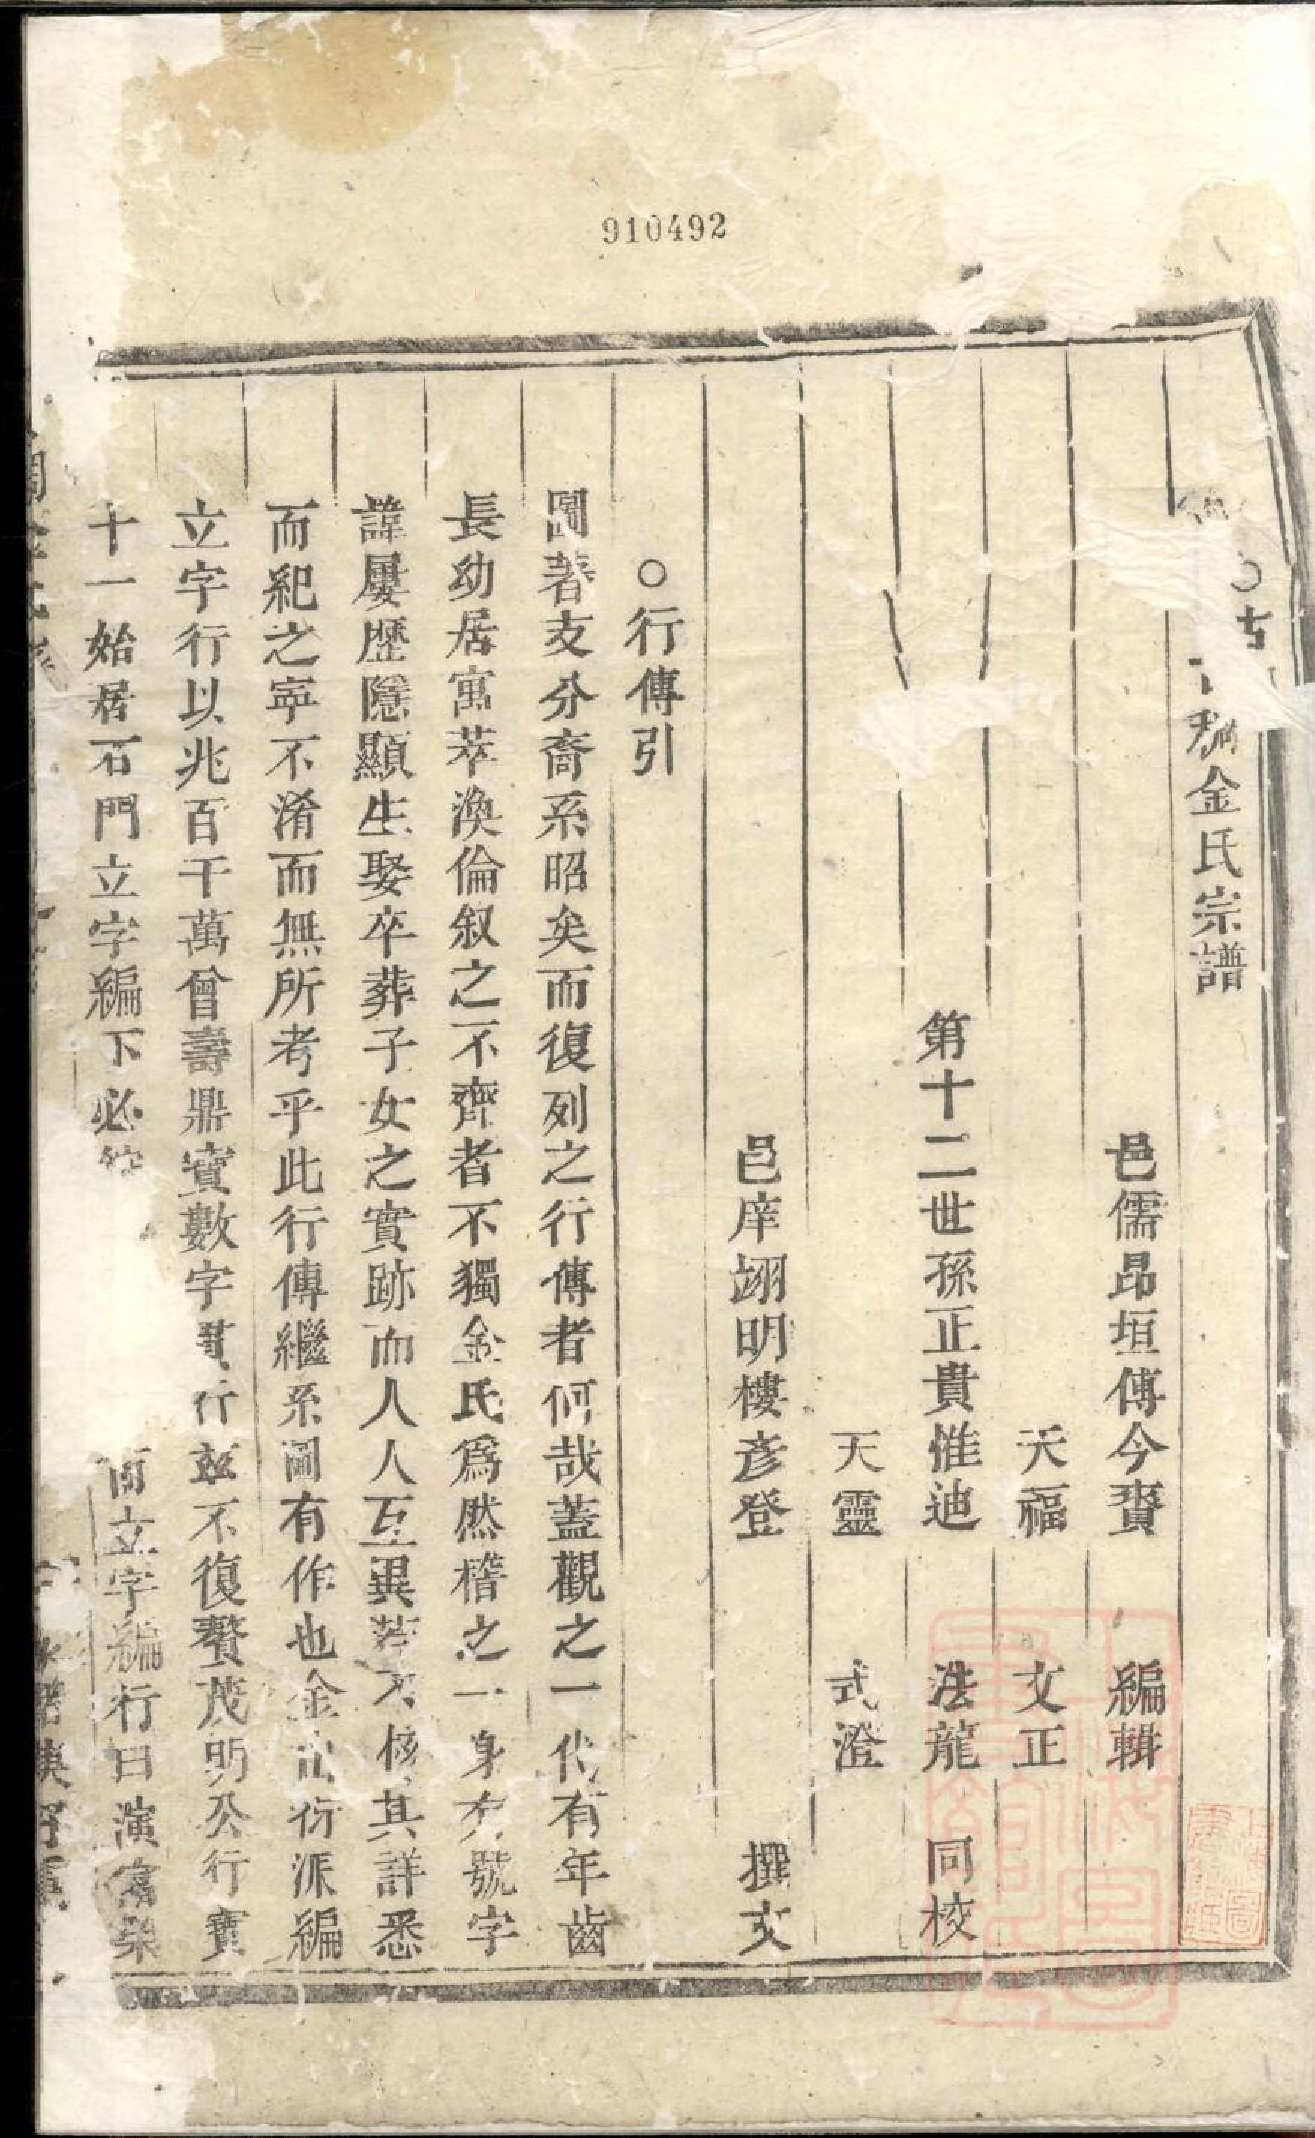 910492
○古
金氏宗譜
邑儒昂垣傅今賚 編輯
天福 文正
第十二世孫正貴惟迪 法龍 同校
天靈 式澄
邑庠翊明樓彥登 撰文
○行傳引
圖著支分裔系昭矣而復列之行傳者何哉蓋觀之一代有年齒
長幼居寓萃渙倫叙之不齊者不獨金氏爲然稽之一身有號字
諱屢歷隱顯生娶卒葬子女之實跡而人人互異若不核其詳悉
而紀之寧不淆而無所考乎此行傳繼系圖有作也金氏衍派編
立字行以兆百千萬曾壽鼎寶數字貫行茲不復贅茂明公行寶
十一始居石門立字編下必 而立字編行曰演富榮